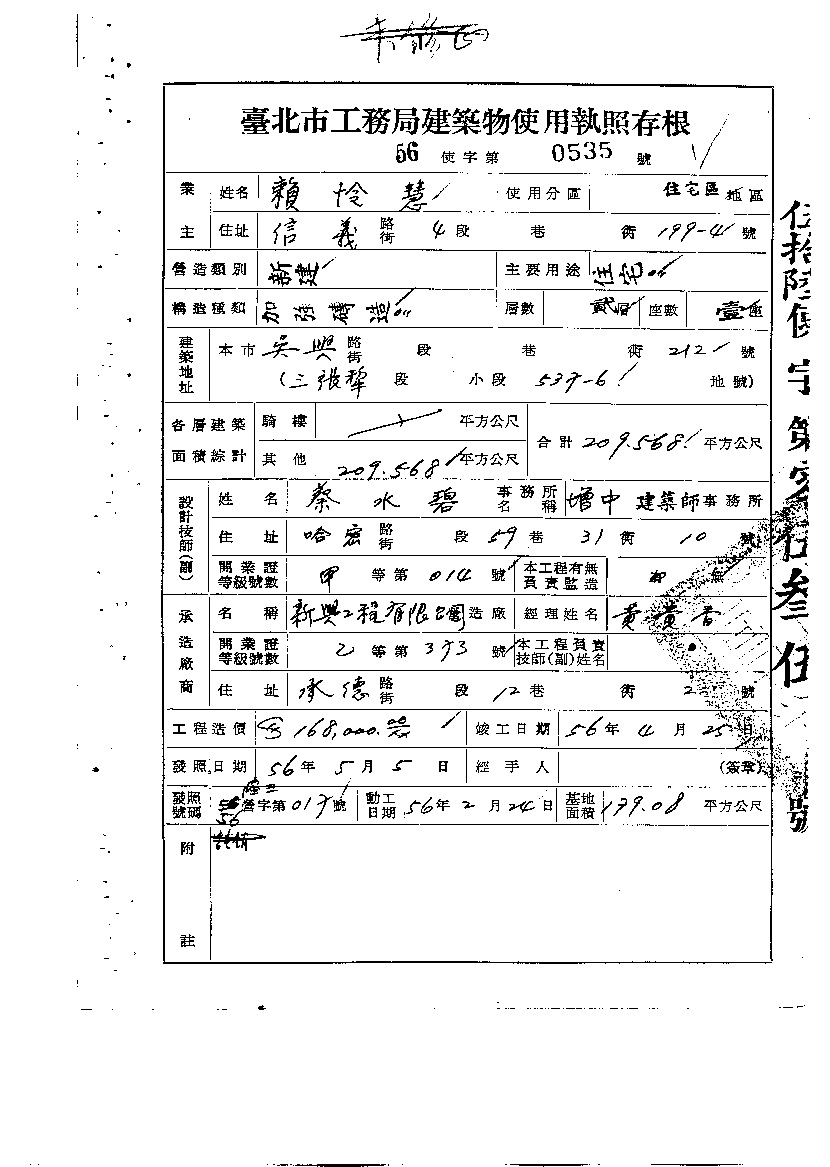 臺北市工務局建築物使用執照存根
56 使字第 0535 號
業主 姓名 賴怜慧 使用分區 住宅區 地區
住址 信義 路街 4 段 巷 街 199-4 號
營造類別 新建 主要用途 住宅
構造種類 加強磚造 層數 貳層 座數 壹座
建築地址 本市 吳興 路街 段 巷 街 212 號
(三張犂 段 小段 地號)
各層建築面積綜計 騎樓 平方公尺 合計 209.568 平方公尺
其他 209.568 平方公尺
設計技師(副) 姓名 蔡水碧 事務所名稱 增中 建築師事務所
住址 哈密 路街 段 59 巷 31 街 10 號
開業證等級號數 甲 等第 014 號 本工程有無負責監造 有 無
承造廠商 名稱 新興工程有限公司 造廠 經理姓名
開業證等級號數 乙 等第 號 本工程負責技師(副)姓名
住址 承德 路街 段 12 巷 街 2 號
工程造價 168,000.00 竣工日期 56年 4月 25日
發照日期 56年 5月 5日 經手人 (簽章)
發照號碼 56 營字第 號 動工日期 56年 2月 24日 基地面積 179.08 平方公尺
附註
伍拾陸使字第零伍叁伍號